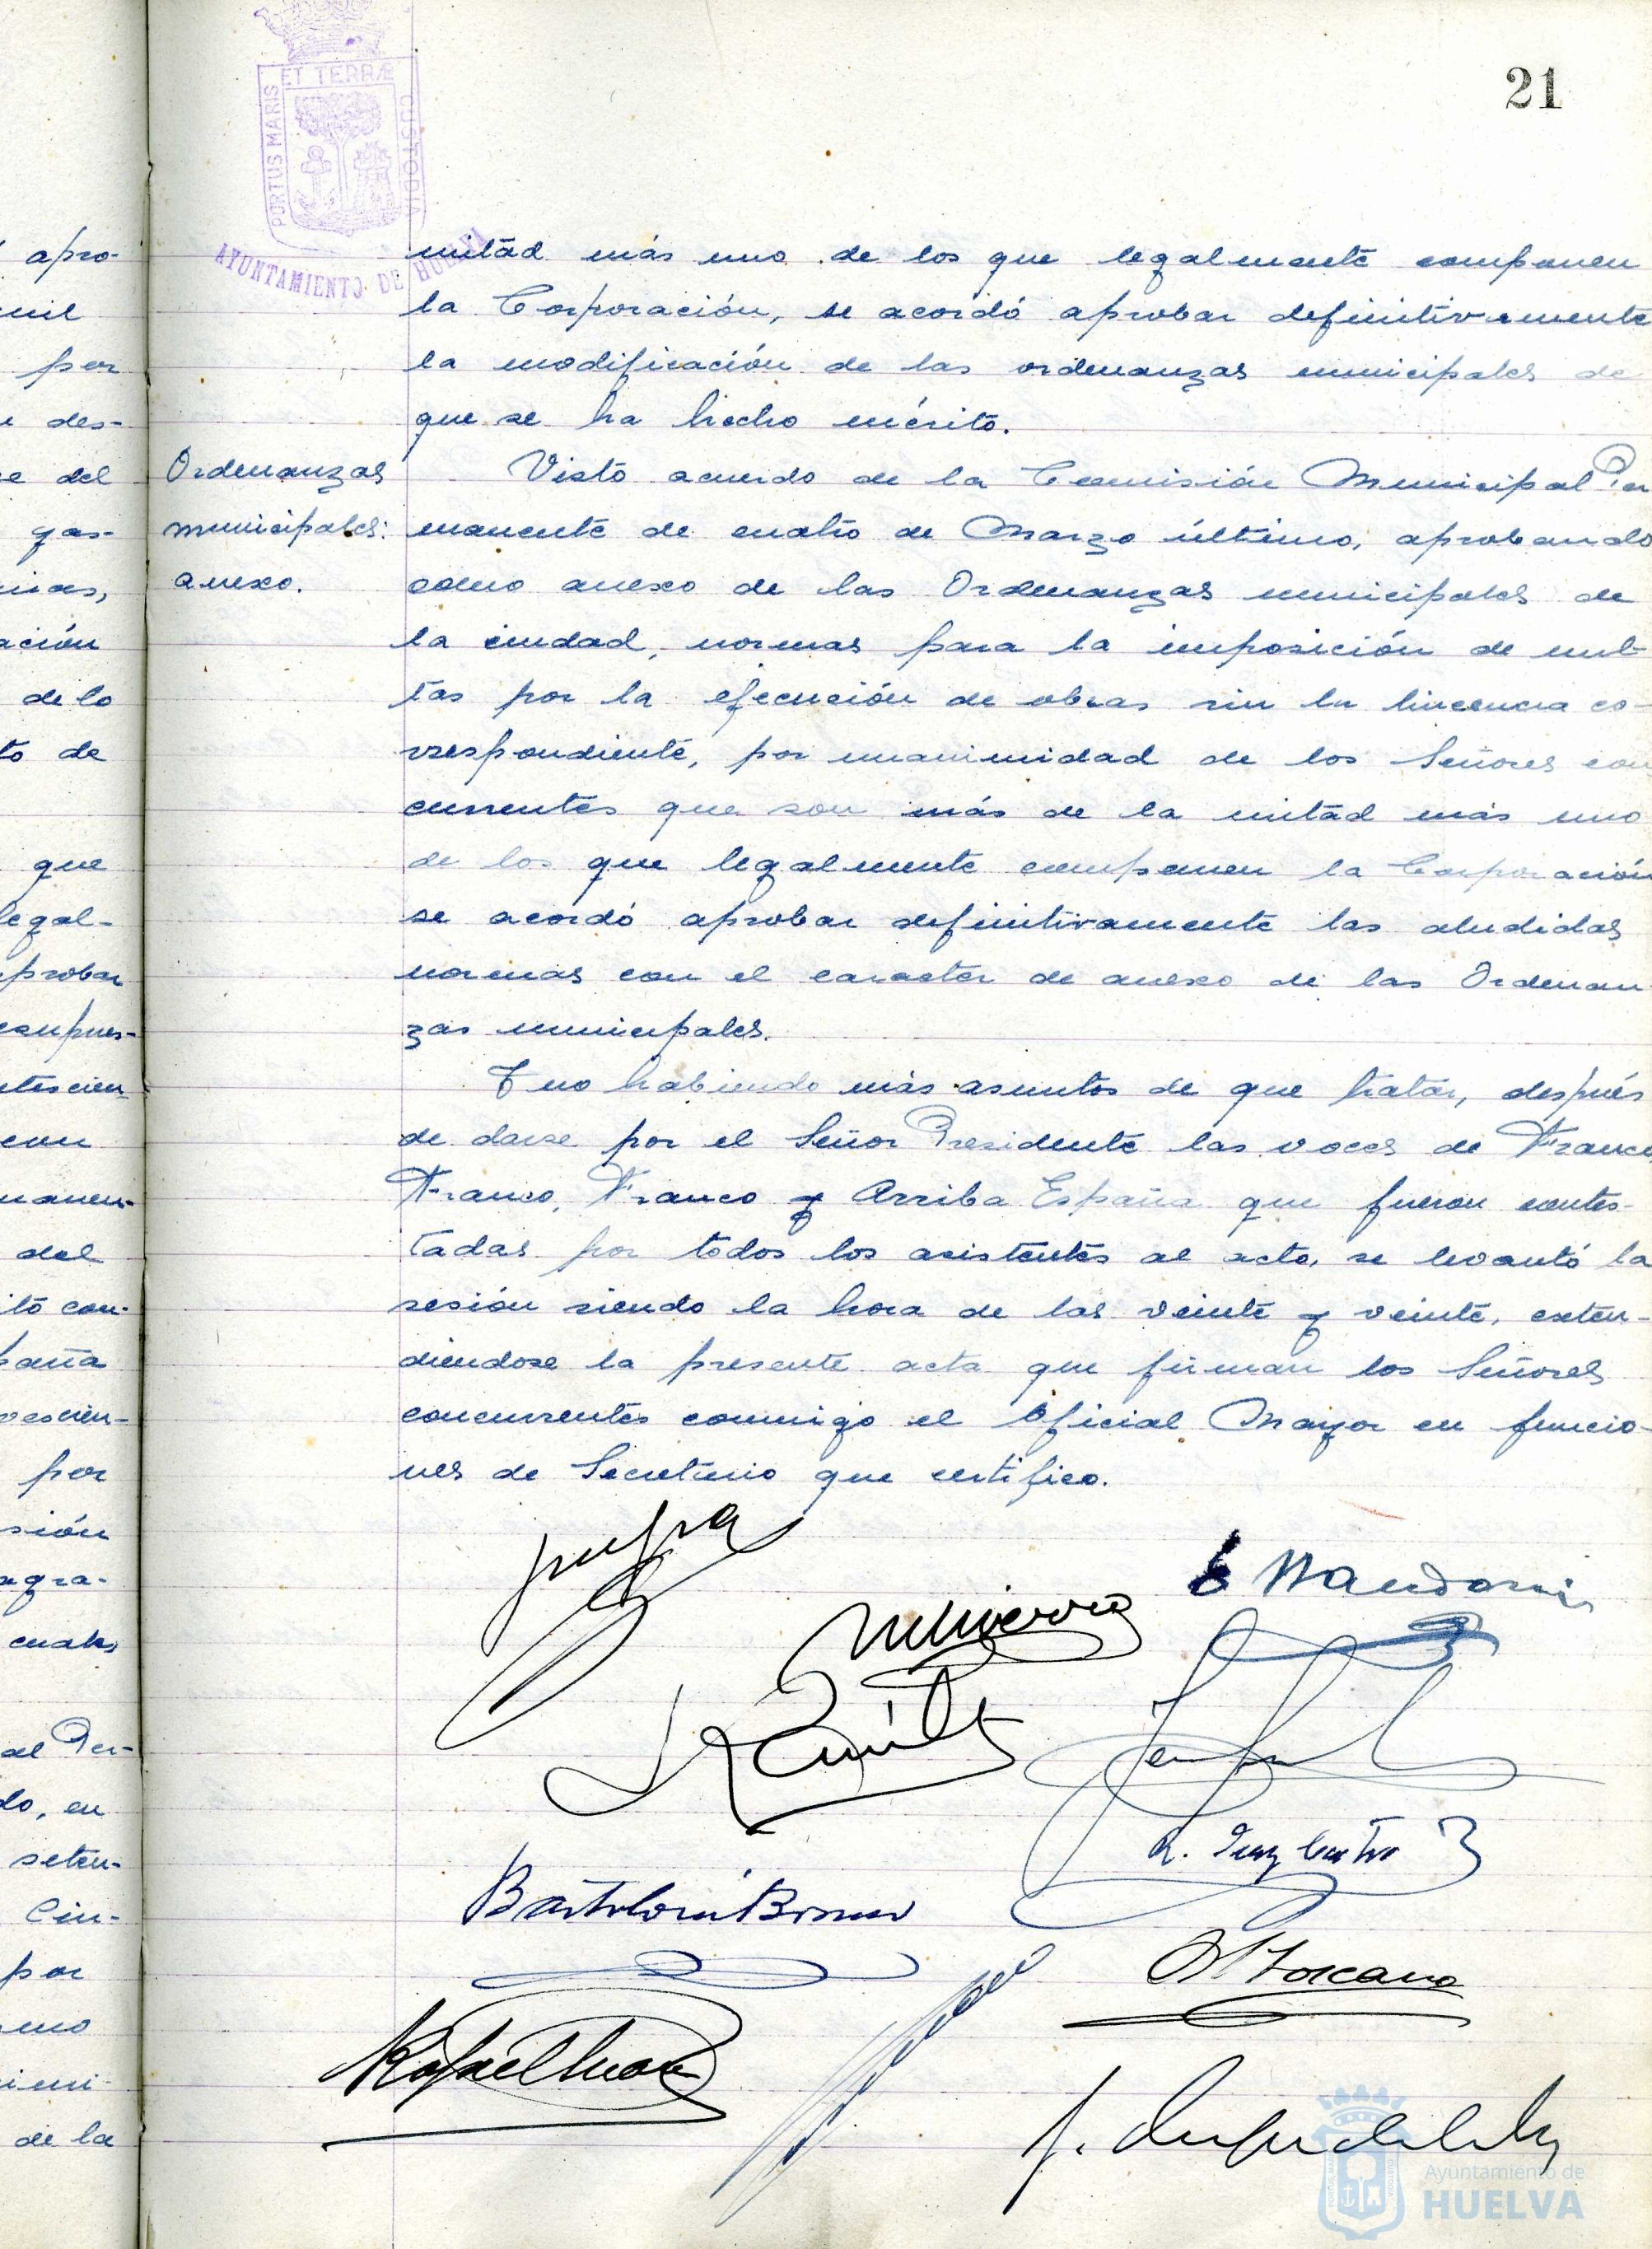 21
PORTUS MARIS
ET TERRÆ
CUSTODIA
AYUNTAMIENTO DE HUELVA
apro-
mil
por
des-
del
gas-
ación
de lo
to de
que
legal-
probar
con
manen-
del
paña
por
sión
al Per-
do, en
seten-
Cin-
por
de la
mitad más uno de los que legalmente componen
la Corporación, se acordó aprobar definitivamente
la modificación de las ordenanzas municipales de
que se ha hecho mérito.
Ordenanzas
municipales:
anexo.
Visto acuerdo de la Comisión Municipal Per
manente de cuatro de Marzo último, aprobando
como anexo de las Ordenanzas municipales de
la ciudad, normas para la imposición de mul-
tas por la ejecución de obras sin la lincencia co-
rrespondiente, por unanimidad de los Señores con
currentes que son más de la mitad más uno
de los que legalmente componen la Corporación
se acordó aprobar definitivamente las aludidas
normas con el caracter de anexo de las Ordenan
zas municipales.
Y no habiendo más asuntos de que tratar, después
de darse por el Señor Presidente las voces de Franco
Franco, Franco y Arriba España que fueron contes-
tadas por todos los asistentes al acto, se levantó la
sesión siendo la hora de las veinte y veinte, exten-
diendose la presente acta que firman los Señores
concurrentes conmigo el Oficial Mayor en funcio-
nes de Secretario que certifico.
Toscano
Rafael
Ayuntamiento de
HUELVA